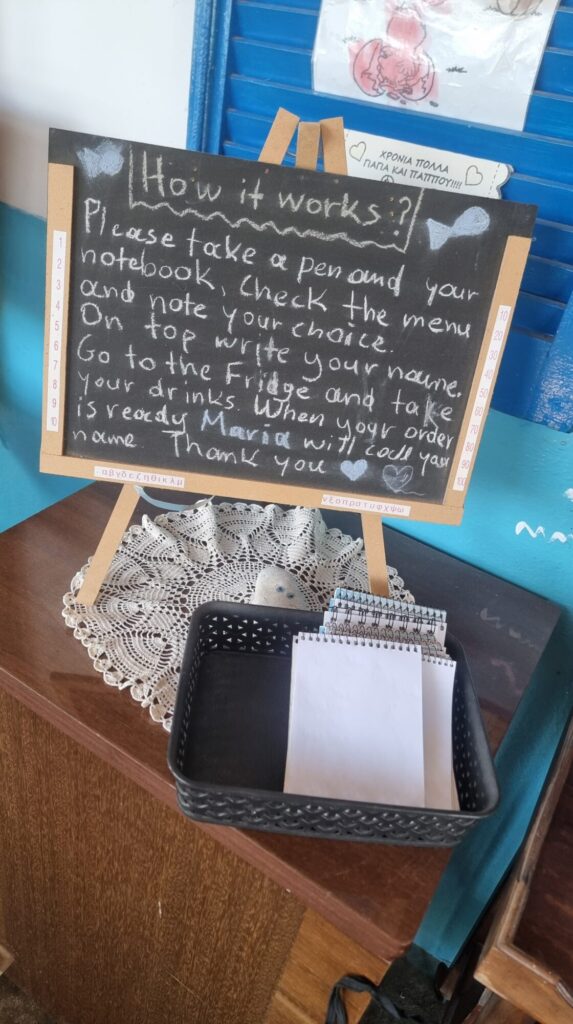 ΧΡΟΝΙΑ ΠΟΛΛΑ
ΠΑΠΑ ΚΑΙ ΠΑΠΠΟΥ!!!!
How it works?
Please take a pen and your
notebook, Check the menu
and note your choice.
On top write your name.
Go to the Fridge and take
your drinks. When your order
is ready Maria will call your
name Thank you
1
2
3
4
5
6
7
8
9
10
10
20
30
40
50
60
70
80
90
100
αβγδεζηθικλμ
νξοπρστυφχψω